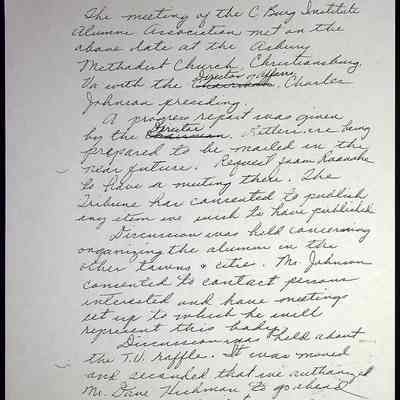 The meeting of the C Burg Institute
Alumni Association met on the
above date at the Asbury
Methodist Church, Christiansburg,
Va with the Chairman, Director of Affairs, Charles
Johnson presiding.
A progress report was given
by the Chairman Director. Letters are being
prepared to be mailed in the
near future. Request from Roanoke
to have a meeting there. The
Tribune has consented to publish
any item we wish to have published
Discussion was held concerning
organizing the alumni in the
other towns & cities. Mr. Johnson
consented to contact persons
interested and have meetings
set up to which he will
represent this body.
Discussion was held about
the T.V. raffle. It was moved
and seconded that we authorized
Mr. Dave Hickman to go ahead